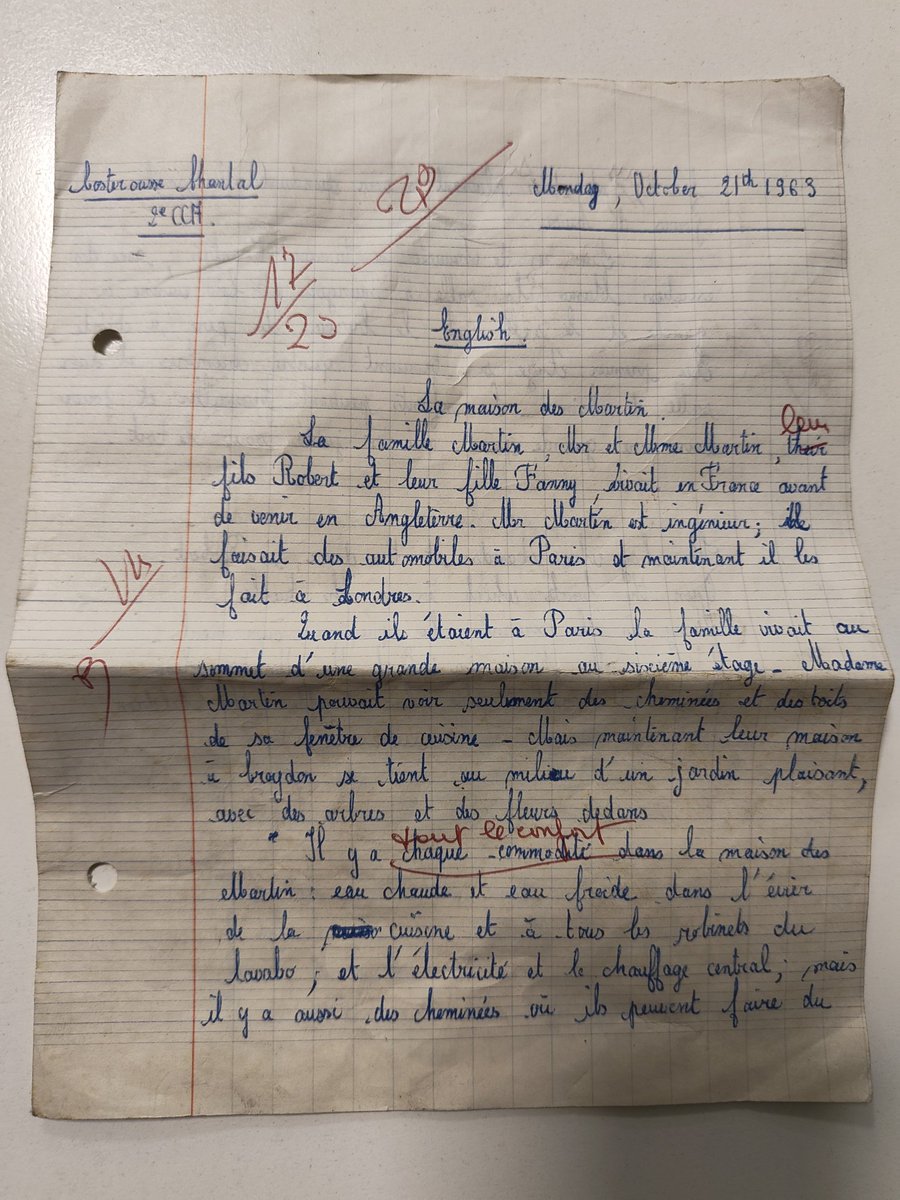 Costerousse Chantal
Monday, October 21th 1963
2e CCA.
17/20
English.
La maison des Martin.
La famille Martin, Mr et Mme Martin, their leur
fils Robert et leur fille Fanny, vivait en France avant
de venir en Angleterre. Mr Martin est ingénieur; il
faisait des automobiles à Paris et maintenant il les
fait à Londres.
Quand ils étaient à Paris la famille vivait au
sommet d'une grande maison au sixième étage - Madame
Martin pouvait voir seulement des cheminées et des toits
de sa fenêtre de cuisine - Mais maintenant leur maison
à Croydon se tient au milieu d'un jardin plaisant,
avec des arbres et des fleurs dedans
tout le confort
Il y a chaque commodité dans la maison des
Martin : eau chaude et eau froide dans l'évier
de la cuisine et à tous les robinets du
lavabo ; et l'électricité et le chauffage central ; mais
il y a aussi des cheminées où ils peuvent faire du